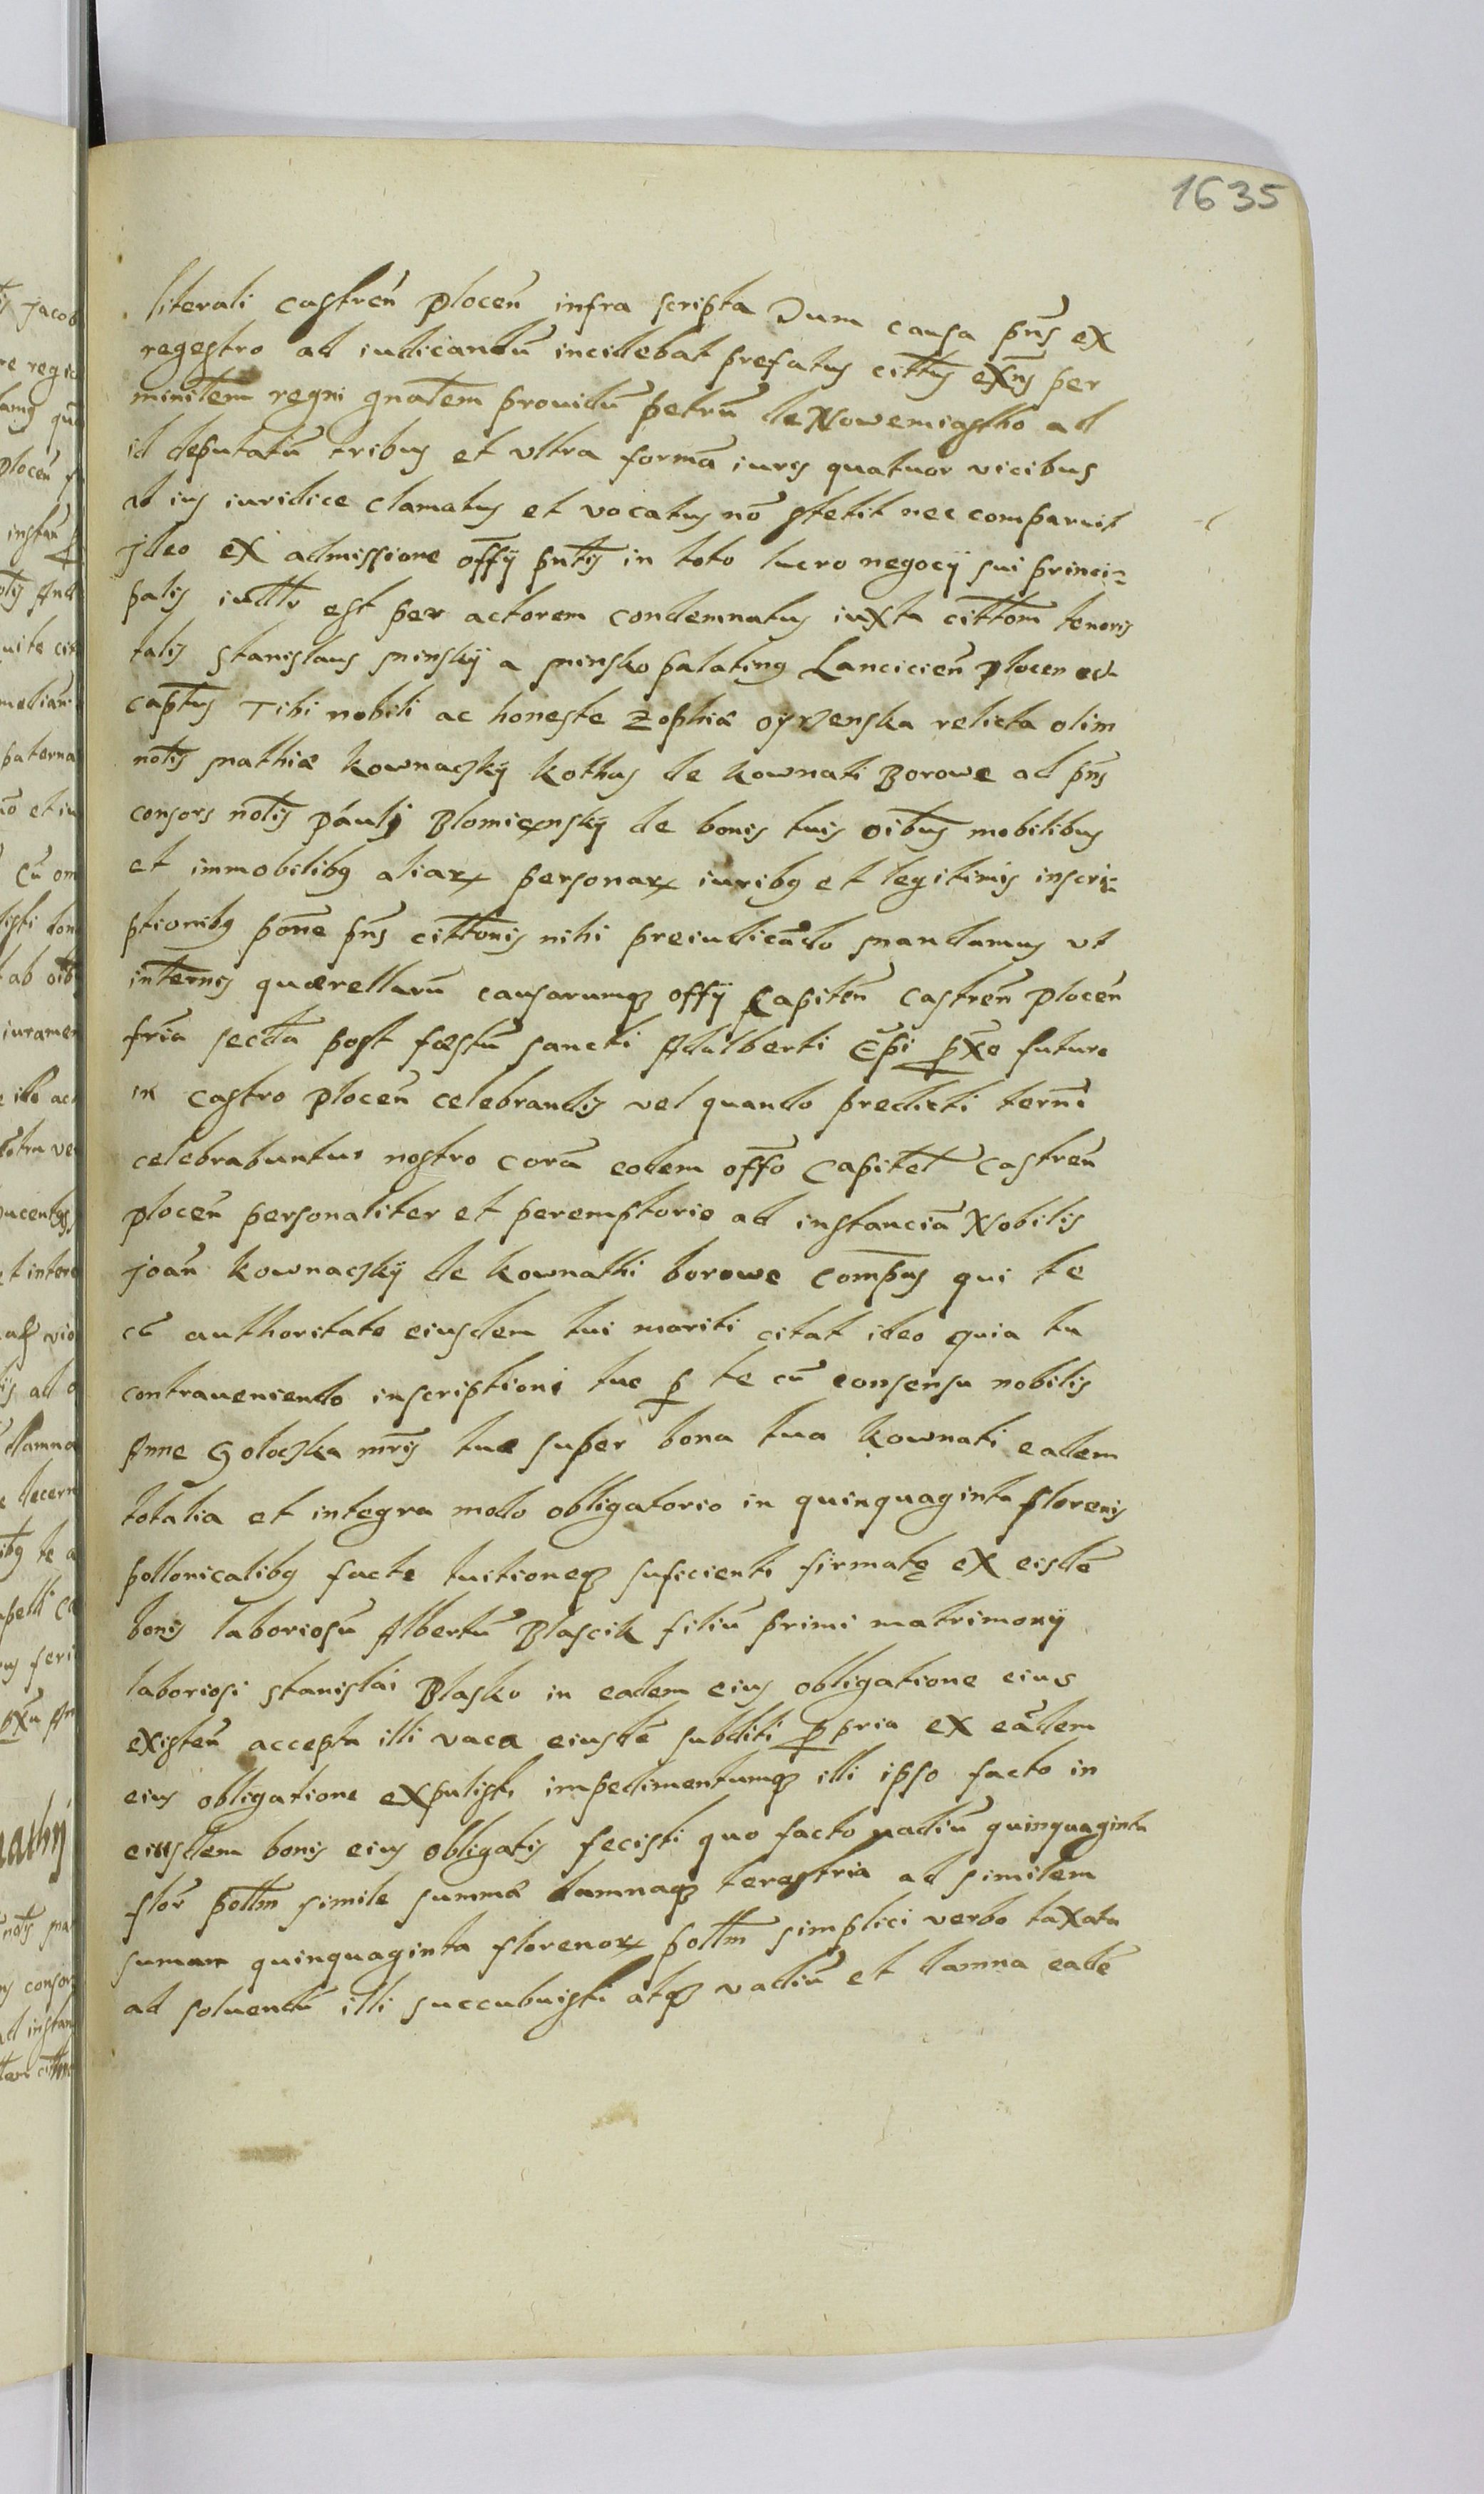 1635
literali castreñ plocen̄ infra scripta Dum causa pn̄s ex
regestro ad iudicandū incidebat prefatus cittus exn̄s per
ministem regni gnatem prouidū petrū de Nowemiastho ad
id deputatū tribus et vltra formā iuris quatuor vicibus
ad ius iuridice clamatus et vocatus nō stetit nec comparuit
jdeo ex admissione offÿ pntis in toto lucro negocÿ sui princi=
palis est per actorem condemnatus iuxta cittom tenoris
talis Stanislaus Minskÿ a Minsko palatinus Lancicien̄ plocen
captus Tibi nobili ac honeste Zophiæ relicta olim
notis Mathiæ Kownaczkÿ Kothus de Kownati Borowe ad pn̄s
consors notis Páuli de bonis tuis oibus mobilibus
et immobilibq aliarx personarx iuribq et legitimis inscri=
ptionibq pōne pn̄s cittonis nihi preiudicādo mandamus vt
in ternis quærellarū causarumq offÿ Capiten̄ Castren̄ plocen̄
fria secda post fæstū sancti Adalberti Ēpi pxe future
in castro plocen̄ celebrandis vel quando predicti termi
celebrabuntur nostro corā eodem offō Capitel Castren̄
plocen̄ personaliter et peremptorie ad instanciā Nobilis
joān Kownaczkÿ de Kownathi borowe compus qui te
cū authoritate eiusdem tui mariti citat ideo quia tu
contraueniendo inscriptioni tue p te cū consensu nobilis
Anne Goloczka mr̄is tue super bona tua Kownati eadem
totalia et integra modo obligatorio in quinquaginta florenis
pollonicalibq facte tuitioneq suficienti firmatę ex eisdē
bonis laboriosū Albertū Blascik filiū primi matrimonÿ
laboriosi stanislai Blasko in eadem eius obligatione eius
existen̄ accepta illi vaca eiusdē subditi ppria ex eadem
eius obligatione expulisti impedimentumq illi ipso facto in
eiusdem bonis eius obligatis fecisti quo facto vadiū quinquaginta
flor̄ pollm simile summā damnaq terestria ad similem
sumam quinquaginta florenorx pollm simplici verbo taxata
ad soluendū illi succubuisti atq vadiū et damna eadē